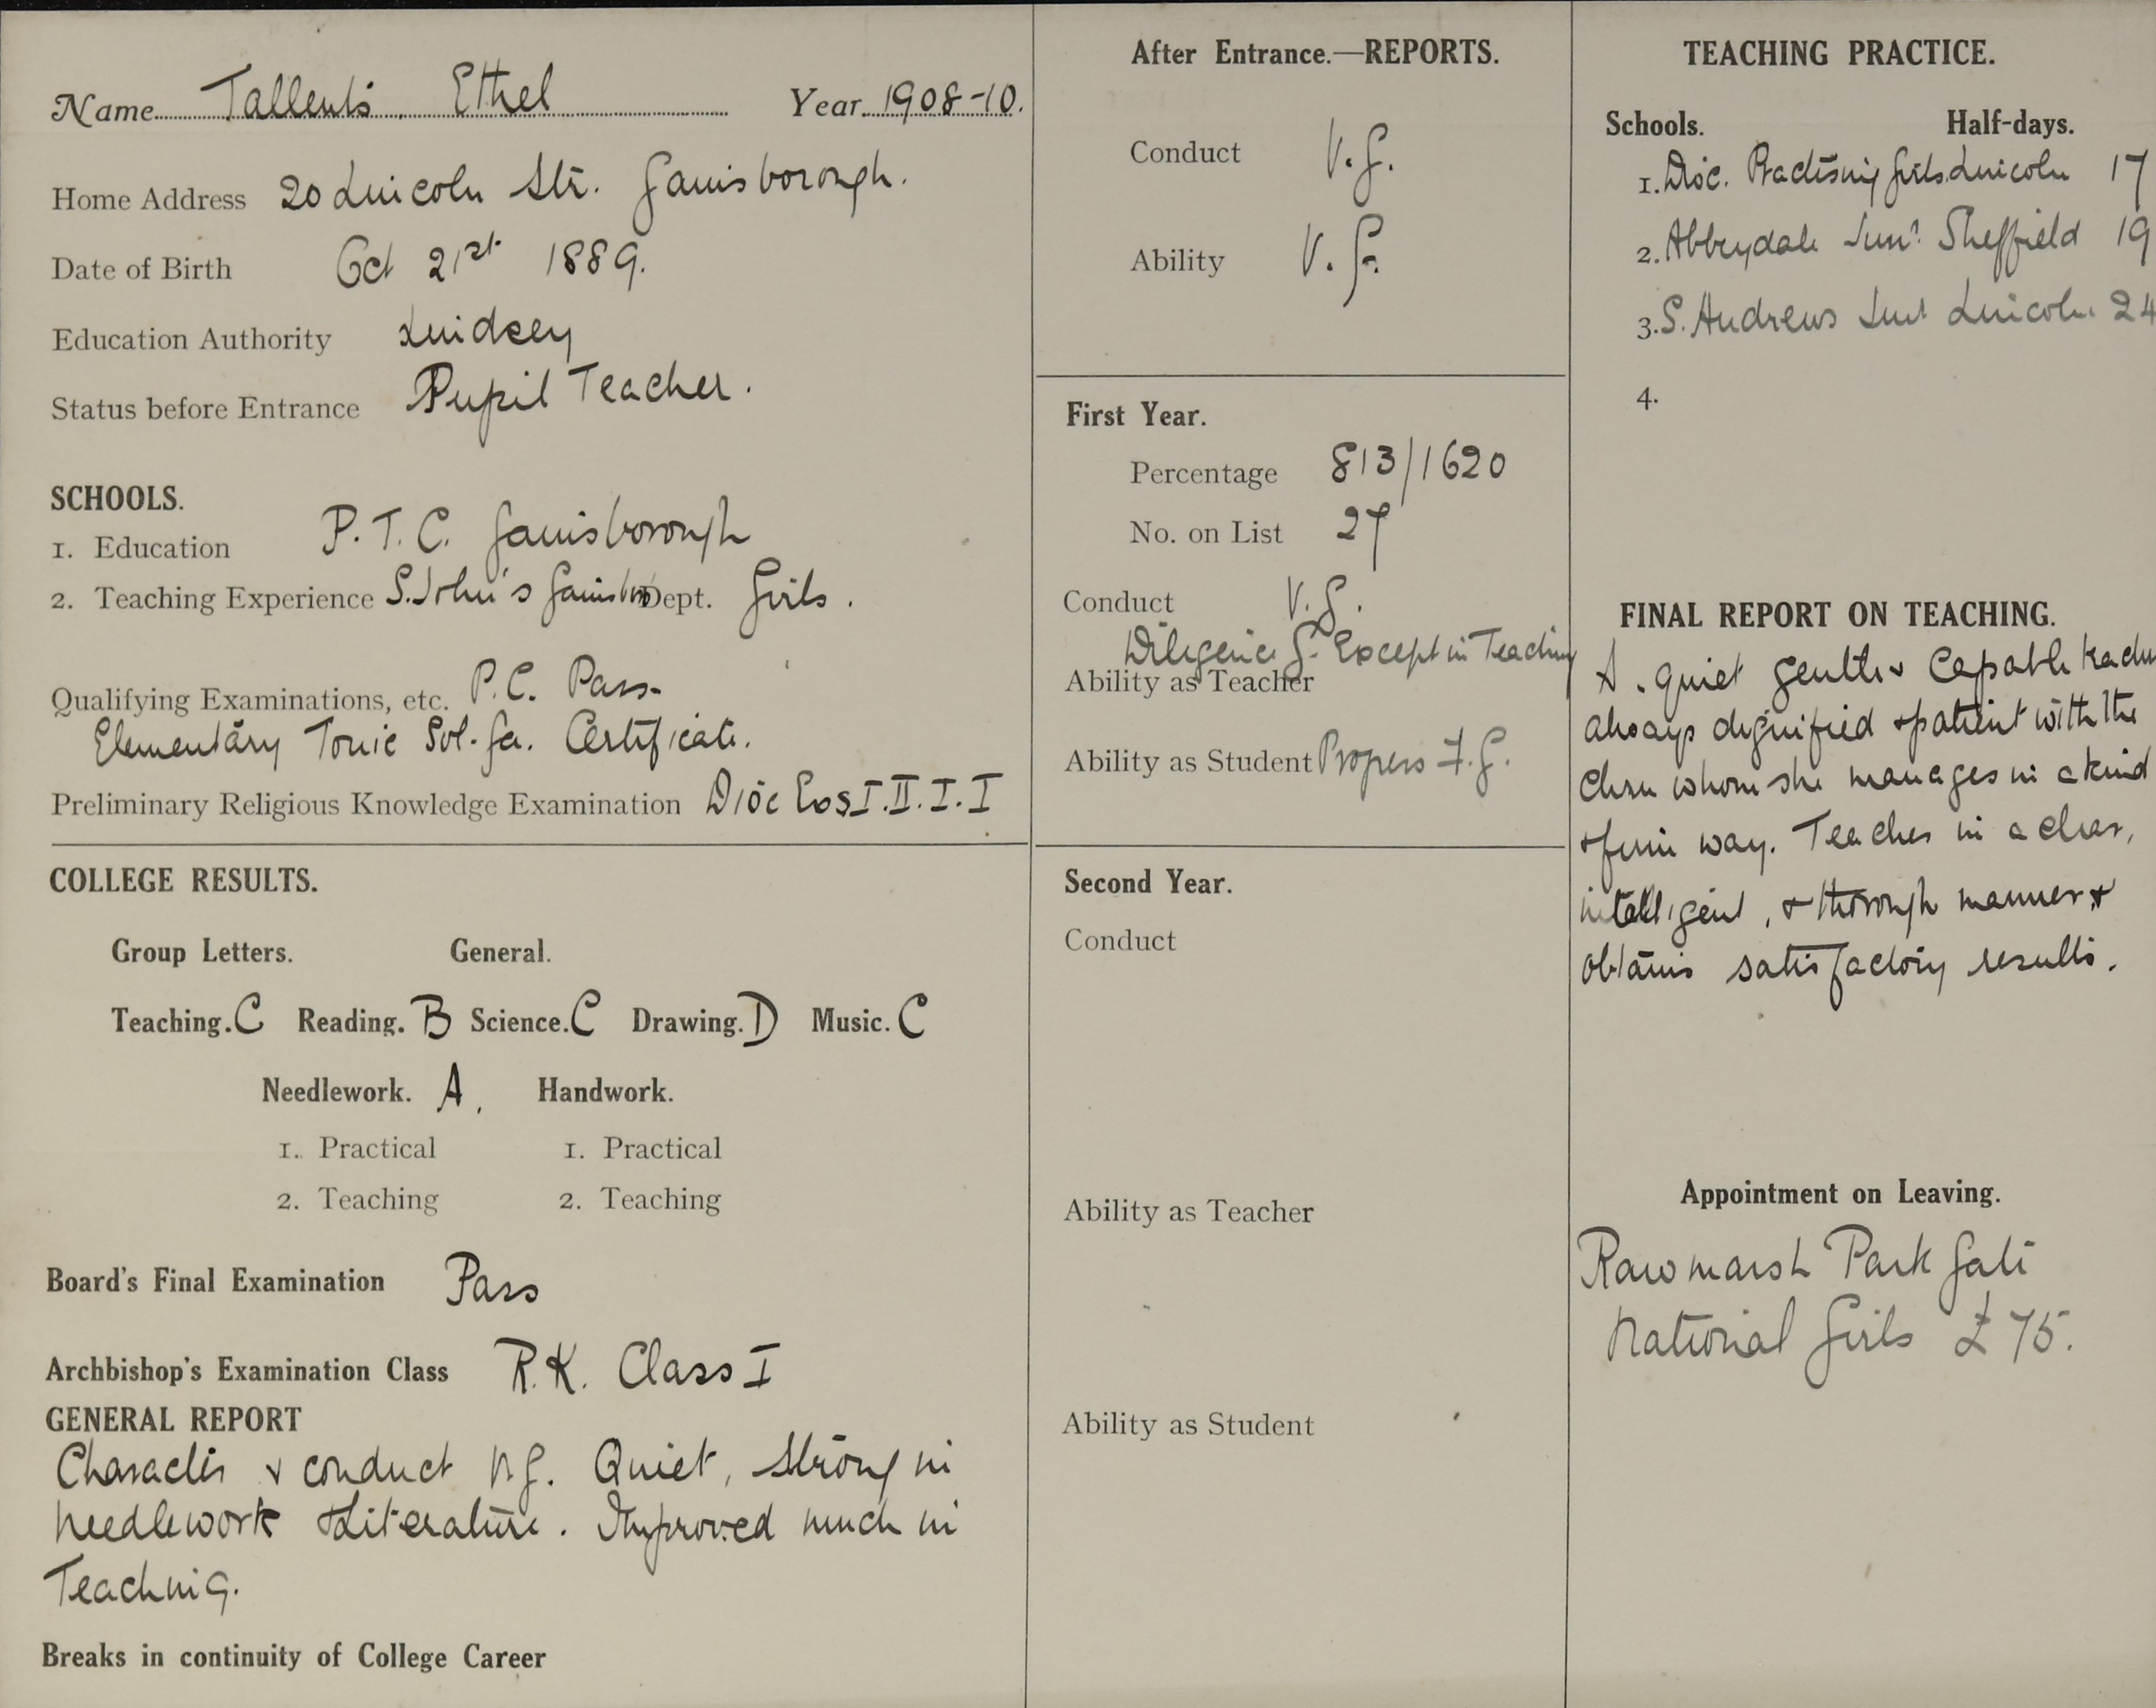 Name Tallents Ethel Year 1908-10.
Home Address 20 Lincoln Str. Gainsborough.
Date of Birth Oct 21st 1889.
Education Authority Lindsey
Status before Entrance Pupil Teacher.
SCHOOLS.
1. Education P.T.C. Gainsborough
2. Teaching Experience S. John's Gainsbro Dept. Girls.
Qualifying Examinations, etc. P.C. Pass
Elementary Tonic Sol-fa. Certificate.
Preliminary Religious Knowledge Examination Dioc I. II. I. I
COLLEGE RESULTS.
Group Letters. General.
Teaching. C Reading. B Science. C Drawing. D Music. C
Needlework. A. Handwork.
1. Practical 1. Practical
2. Teaching 2. Teaching
Board's Final Examination Pass
Archbishop's Examination Class R.K. Class I
GENERAL REPORT
Character & conduct V.G. Quiet, strong in
needlework & Literature. Improved much in
Teaching.
Breaks in continuity of College Career
After Entrance.—REPORTS.
Conduct V.G.
Ability V.F.
First Year.
Percentage 813/1620
No. on List 27
Conduct V.G.
Diligence G. Except in Teaching
Ability as Teacher
Ability as Student Progress F.G.
Second Year.
Conduct
Ability as Teacher
Ability as Student
TEACHING PRACTICE.
Schools. Half-days.
1. Dioc. Practising Girls Lincoln 17
2. Abbeydale Junr. Sheffield 19
3. S. Andrews Lincoln 24
4.
FINAL REPORT ON TEACHING.
A quiet gentle & capable teacher
always dignified & patient with the
chrn whom she manages in a kind
& firm way. Teaches in a clear,
intelligent, & thorough manner &
obtains satisfactory results.
Appointment on Leaving.
Rawmarsh Park Gate
National Girls £75.